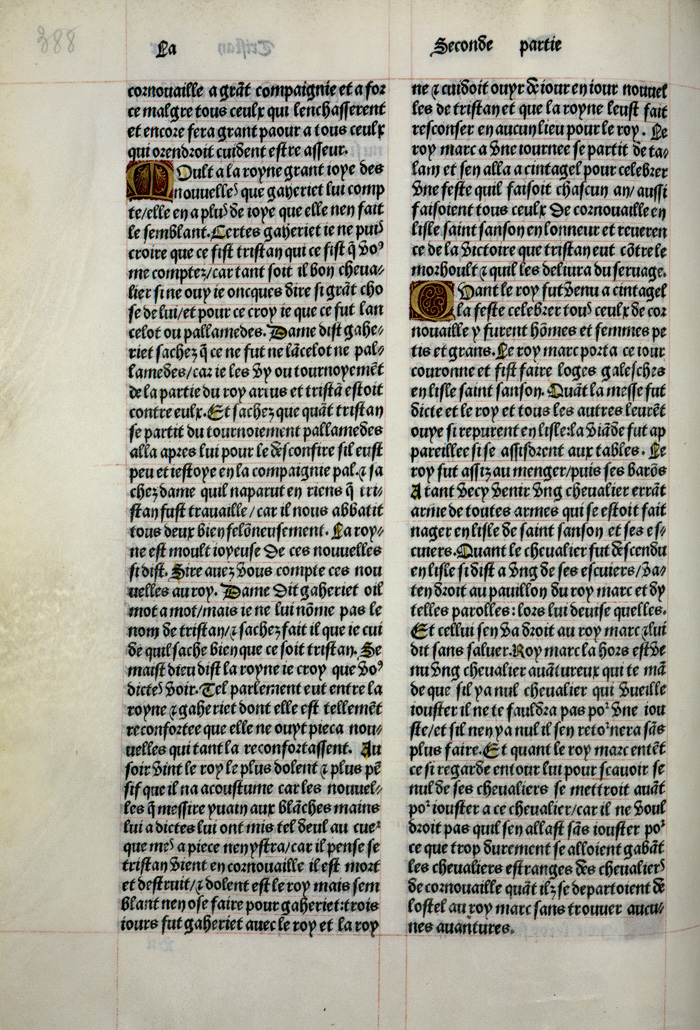 388
La
Seconde partie
cornouaille a grāt compaignie et a for
ce malgre tous ceulx qui lenchasserent
et encore fera grant paour a tous ceulx
qui orendroit cuident estre asseur.
Moult a la royne grant ioye des
nouuelles que gaheriet lui comp
te/elle en a plus de ioye que elle nen fait
le semblant. Certes gaheriet ie ne puis
croire que ce fist tristan qui ce fist q̄ voꝰ
me comptez/car tant soit il bon cheua⸗
lier si ne ouy ie oncques dire si grāt cho
se de lui/et pour ce croy ie que ce fut lan
celot ou pallamedes. Dame dist gahe⸗
riet sachez q̄ ce ne fut ne lācelot ne pal⸗
lamedes/car ie les vy ou tournoyemēt
de la partie du roy arius et tristā estoit
contre eulx. Et sachez que quāt tristan
se partit du tournoiement pallamedes
alla apres lui pour le desconfire sil eust
peu et iestoye en la compaignie pal. ⁊ sa
chez dame quil naparut en riens q̄ tri⸗
stan fust trauaille/car il nous abbatit
tous deux bien felōneusement. La roy⸗
ne est moult ioyeuse De ces nouuelles
si dist. Sire auez vous compte ces nou
uelles au roy. Dame Dit gaheriet oil
mot a mot/mais ie ne lui nōme pas le
nom de tristan/⁊ sachez fait il que ie cui
de quil sache bien que ce soit tristan. Se
maist dieu dist la royne ie croy que voꝰ
dictes voir. Tel parlement eut entre la
royne ⁊ gaheriet dont elle est tellemēt
reconfortee que elle ne ouyt pieca nou⸗
uelles qui tant la reconfortassent. Au
soir vint le roy le plus dolent ⁊ plus pē
sif que il na acoustume car les nouuel⸗
les q̄ messire yuain aux blāches mains
lui a dictes lui ont mis tel deul au cueʳ
que mes a piece nen ystra/car il pense se
tristan vient en cornouaille il est mort
et destruit/⁊ dolent est le roy mais sem
blant nen ose faire pour gaheriet:trois
iours fut gaheriet auec le roy et la roy
ne ⁊ cuidoit ouyr de iour en iour nouuel
les de tristan et que la royne leust fait
resconser en aucun lieu pour le roy. Le
roy marc a vne iournee se partit de ta⸗
lam et sen alla a cintagel pour celebrer
vne feste quil faisoit chascun an/aussi
faisoient tous ceulx De cornouaille en
lisle saint sanson en lonneur et reueren
ce de la victoire que tristan eut cōtre le
morhoult ⁊ quil les deliura du seruage.
Quant le roy fut venu a cintagel
la feste celebrer tous ceulx de cor
nouaille y furent hōmes et femmes pe
tis et grans. Le roy marc porta ce iour
couronne et fist faire loges galesches
en lisle saint sanson. Quāt la messe fut
dicte et le roy et tous les autres leurēt
ouye si repurent en lisle:la viāde fut ap
pareillee si se assistrent aux tables. Le
roy fut assiz au menger/puis ses barōs
Atant vecy venir vng cheualier errāt
arme de toutes armes qui se estoit fait
nager en lisle de saint sanson et ses es⸗
cuiers. Quant le cheualier fut descendu
en lisle si dist a vng de ses escuiers/va⸗
ten droit au pauillon du roy marc et dy
telles parolles:lors lui deuise quelles.
Et cellui sen va droit au roy marc ⁊ lui
dit sans saluer. Roy marc la hors est ve
nu vng cheualier auātureux qui te mā
de que sil ya nul cheualier qui vueille
iouster il ne te fauldra pas poʳ vne iou
ste/et sil nen ya nul il sen retoʳnera sās
plus faire. Et quant le roy marc entēt
ce si regarde entour lui pour scauoir se
nul de ses cheualiers se mettroit auāt
poʳ iouster a ce cheualier/car il ne voul
droit pas quil sen allast sās iouster poʳ
ce que trop durement se alloient gabāt
les cheualiers estranges des cheualiers
de cornouaille quāt ilz se departoient de
lostel au roy marc sans trouuer aucu⸗
nes auantures.